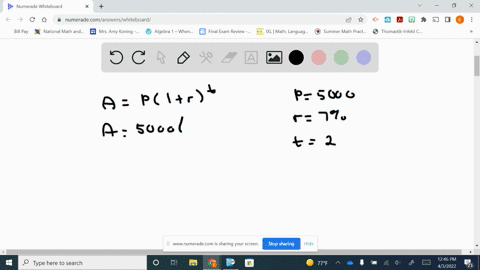 Numerade Whiteboard
numerade.com/answers/whiteboard/
Bill Pay
National Math and...
Mrs. Amy Koning -...
Algebra 1 – When...
Final Exam Review -...
IXL | Math, Language...
Summer Math Pract...
A = P(1+r)^t
A = 5000(
P = 5000
r = 7%
t = 2
www.numerade.com is sharing your screen.
Stop sharing
Hide
Type here to search
77°F
12:46 PM
4/3/2022